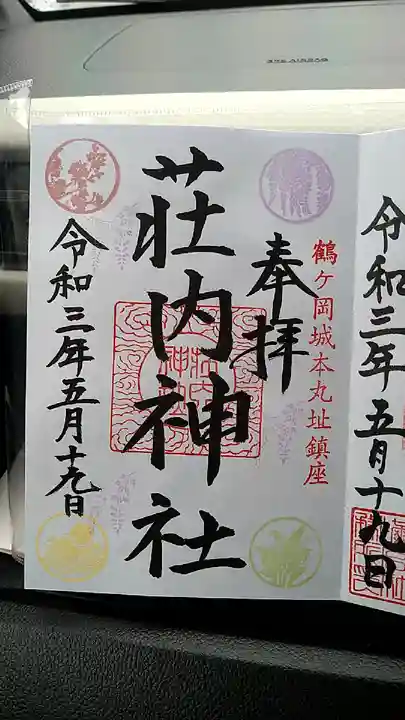 SRS AIRBAG
令和三年五月十九日
鶴ヶ岡城本丸址鎮座
奉拝
荘内神社
令和三年五月十九日